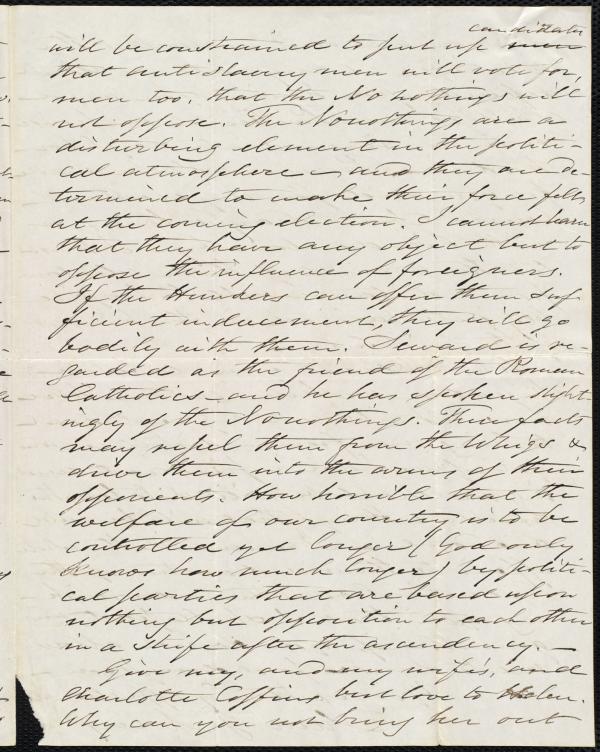 candidates
will be constrained to put up men
that antislavery men will vote for,
men too, that the No nothings will
not oppose. The Nonothings are a
disturbing element in the politi-
cal atmosphere – and they are de-
termined to make their force felt
at the coming election. I cannot learn
that they have any object but to
oppose the influence of foreigners.
If the Hunders can offer them suf
ficient inducement, they will go
bodily with them. Seward is re-
garded as the friend of the Roman
Catholics – and he has spoken slight-
ingly of the Nonothings. These facts
may repel them from the Whigs &
drive them into the arms of their
opponents. How horrible that the
welfare of our country is to be
controlled yet longer (God only
knows how much longer) by politi-
cal parties that are based upon
nothing but opposition to each other
in a strife after the ascendency. –
Give my, and my wife's, and
Charlotte Coffins best love to Helen.
Why can you not bring her out